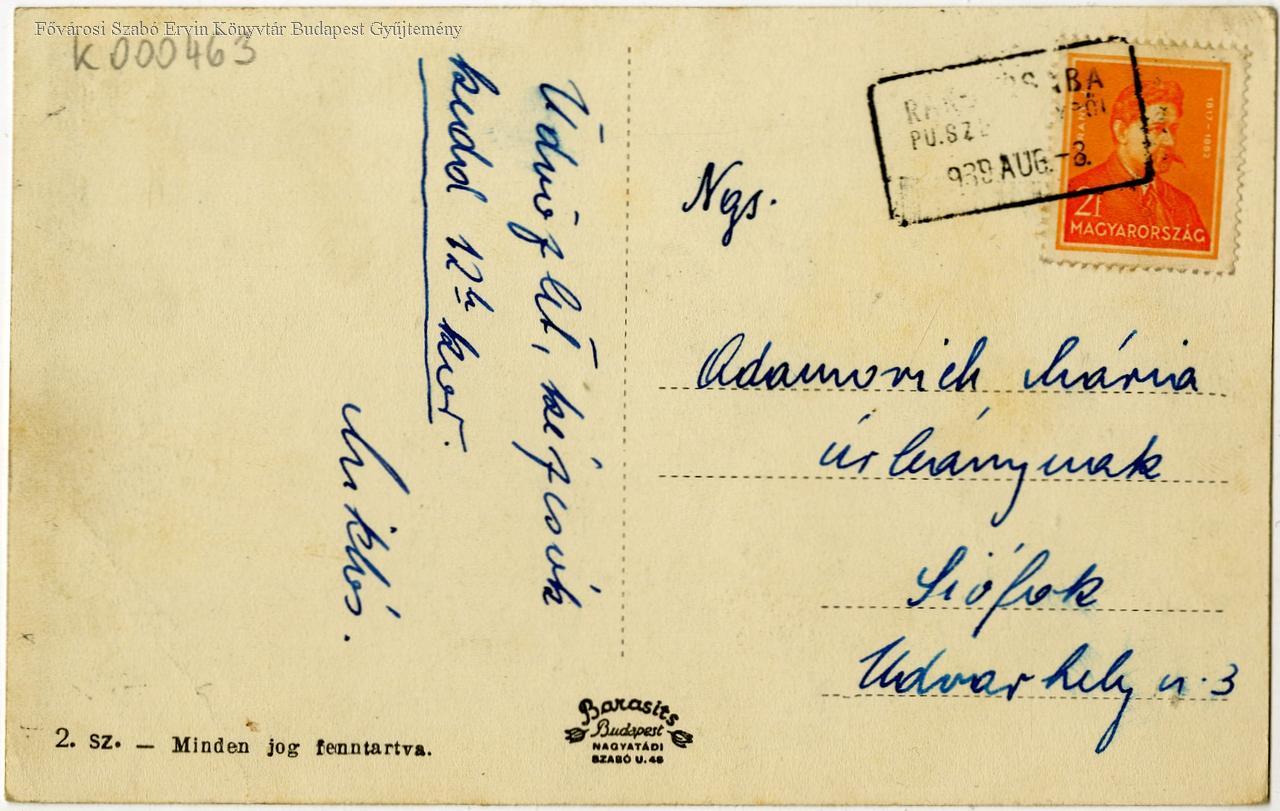 Fővárosi Szabó Ervin Könyvtár Budapest Gyűjtemény
K000463
Üdvözlet, kézcsók
kedd 12h-kor.
Miklós.
939 AUG. -8.
1817-1882
2f
MAGYARORSZÁG
Ngs.
Adamovich Mária
úrleánynak
Siófok
Udvarhely u. 3
2. sz. — Minden jog fenntartva.
Barasits
Budapest
NAGYATÁDI
SZABÓ U. 48